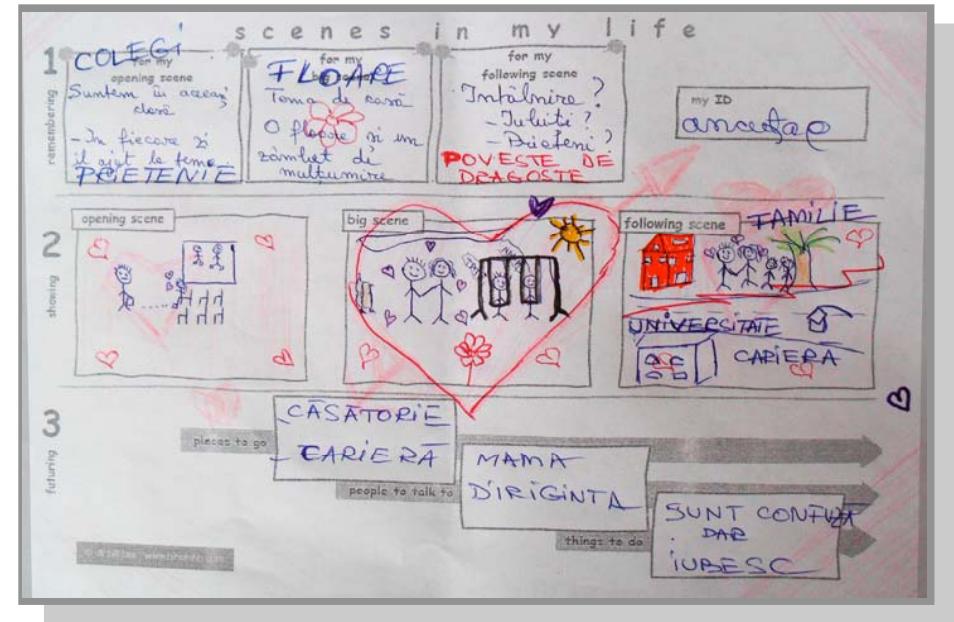 scenes in my life
1
remembering
COLEGI
for my
opening scene
Suntem în aceeaș
clasă
- In fiecare zi
îl ajut la teme
PRIETENIE
FLOARE
for my
Tema de casă
O floare și un
zâmbet de
mulțumire
for my
following scene
Intâlnire?
- Iubiți?
- Prieteni?
POVESTE DE
DRAGOSTE
my ID
2
showing
opening scene
big scene
following scene
FAMILIE
UNIVERSITATE
CARIERA
3
futuring
places to go
- CĂSĂTORIE
- CARIERĂ
people to talk to
MAMA
DIRIGINTA
things to do
SUNT CONFUZA
DAR
IUBESC